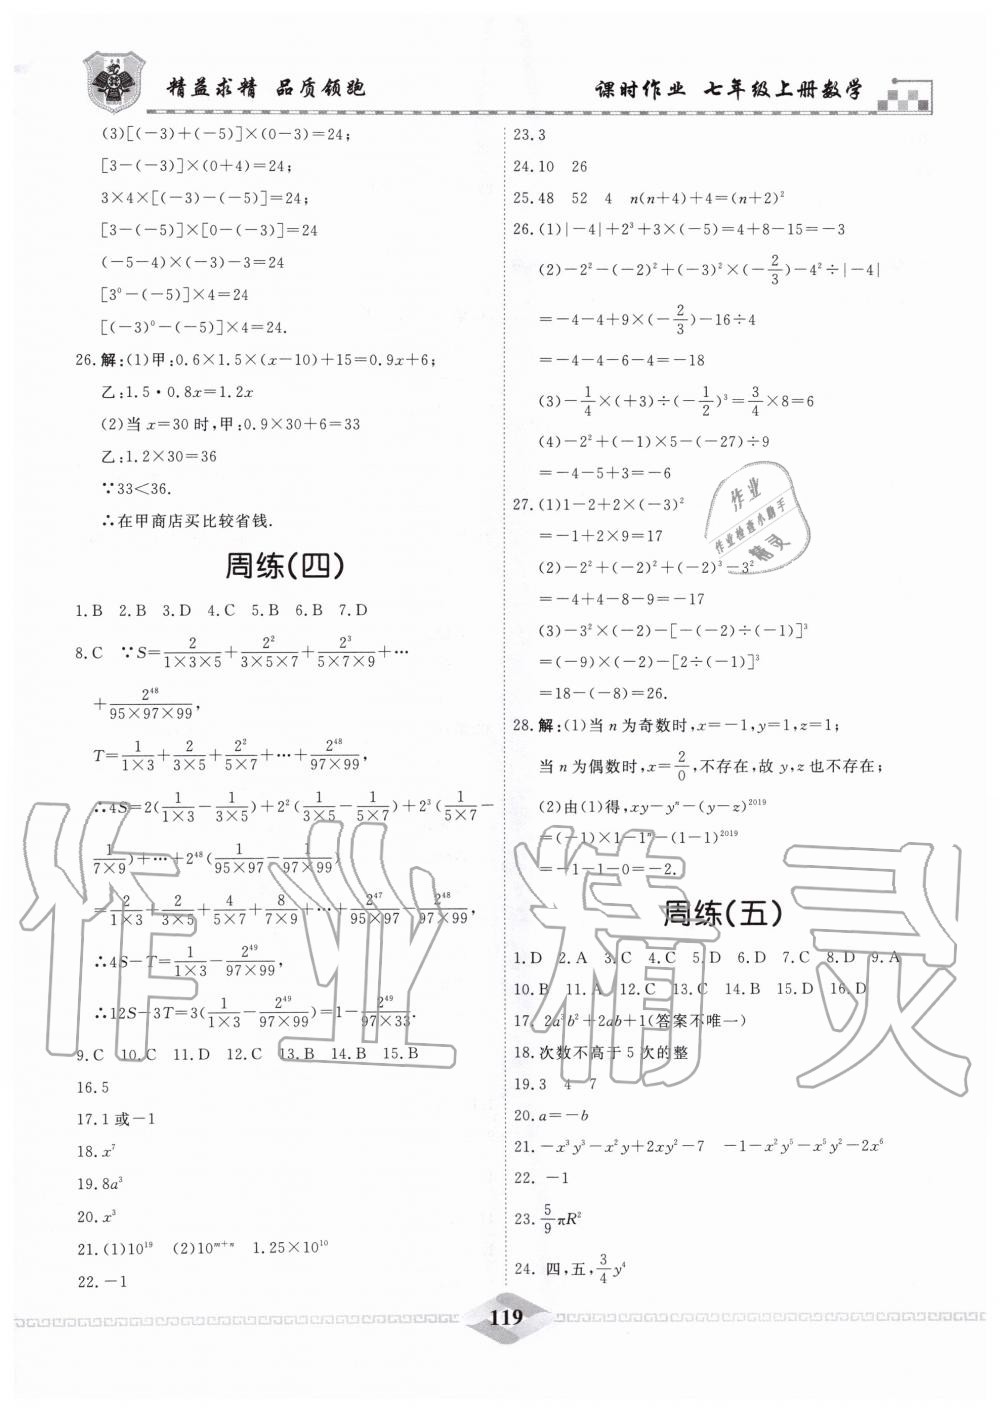 精益求精 品质领跑
课时作业 七年级上册数学
(3)[(-3)+(-5)]×(0-3)=24;
[3-(-3)]×(0+4)=24;
3×4×[(-3)-(-5)]=24;
[3-(-5)]×[0-(-3)]=24
(-5-4)×(-3)-3=24
[3⁰-(-5)]×4=24
[(-3)⁰-(-5)]×4=24.
26.解:(1)甲:0.6×1.5×(x-10)+15=0.9x+6;
乙:1.5·0.8x=1.2x
(2)当x=30时,甲:0.9×30+6=33
乙:1.2×30=36
∵33<36.
∴在甲商店买比较省钱.
周练(四)
1.B 2.B 3.D 4.C 5.B 6.B 7.D
8.C ∵S=2/(1×3×5)+2²/(3×5×7)+2³/(5×7×9)+…
+2⁴⁸/(95×97×99),
T=1/(1×3)+2/(3×5)+2²/(5×7)+…+2⁴⁸/(97×99),
∴4S=2(1/(1×3)-1/(3×5))+2²(1/(3×5)-1/(5×7))+2³(1/(5×7)-
1/(7×9))+…+2⁴⁸(1/(95×97)-1/(97×99))
=2/(1×3)+2/(3×5)+4/(5×7)+8/(7×9)+…+2⁴⁷/(95×97)-2⁴⁸/(97×99),
∴4S-T=1/(1×3)-2⁴⁹/(97×99),
∴12S-3T=3(1/(1×3)-2⁴⁹/(97×99))=1-2⁴⁹/(97×33).
9.C 10.C 11.D 12.C 13.B 14.B 15.B
16.5
17.1或-1
18.x⁷
19.8a³
20.x³
21.(1)10¹⁹ (2)10ᵐ⁺ⁿ 1.25×10¹⁰
22.-1
23.3
24.10 26
25.48 52 4 n(n+4)+4=(n+2)²
26.(1)|-4|+2³+3×(-5)=4+8-15=-3
(2)-2²-(-2)²+(-3)²×(-2/3)-4²÷|-4|
=-4-4+9×(-2/3)-16÷4
=-4-4-6-4=-18
(3)-1/4×(+3)÷(-1/2)³=3/4×8=6
(4)-2²+(-1)×5-(-27)÷9
=-4-5+3=-6
27.(1)1-2+2×(-3)²
=-1+2×9=17
(2)-2²+(-2)²+(-2)³-3²
=-4+4-8-9=-17
(3)-3²×(-2)-[-(-2)÷(-1)]³
=(-9)×(-2)-[2÷(-1)]³
=18-(-8)=26.
28.解:(1)当n为奇数时,x=-1,y=1,z=1;
当n为偶数时,x=2/0,不存在,故y,z也不存在;
(2)由(1)得,xy-yⁿ-(y-z)²⁰¹⁹
=(-1)×1-1ⁿ-(1-1)²⁰¹⁹
=-1-1-0=-2.
周练(五)
1.D 2.A 3.C 4.C 5.D 6.D 7.C 8.D 9.A
10.B 11.A 12.C 13.C 14.B 15.D 16.D
17.2a³b²+2ab+1(答案不唯一)
18.次数不高于5次的整
19.3 4 7
20.a=-b
21.-x³y³-x²y+2xy²-7 -1-x²y⁵-x⁵y²-2x⁶
22.-1
23.5/9πR²
24.四,五,3/4y⁴
119
作业
作业检查小助手
精灵
作业精灵